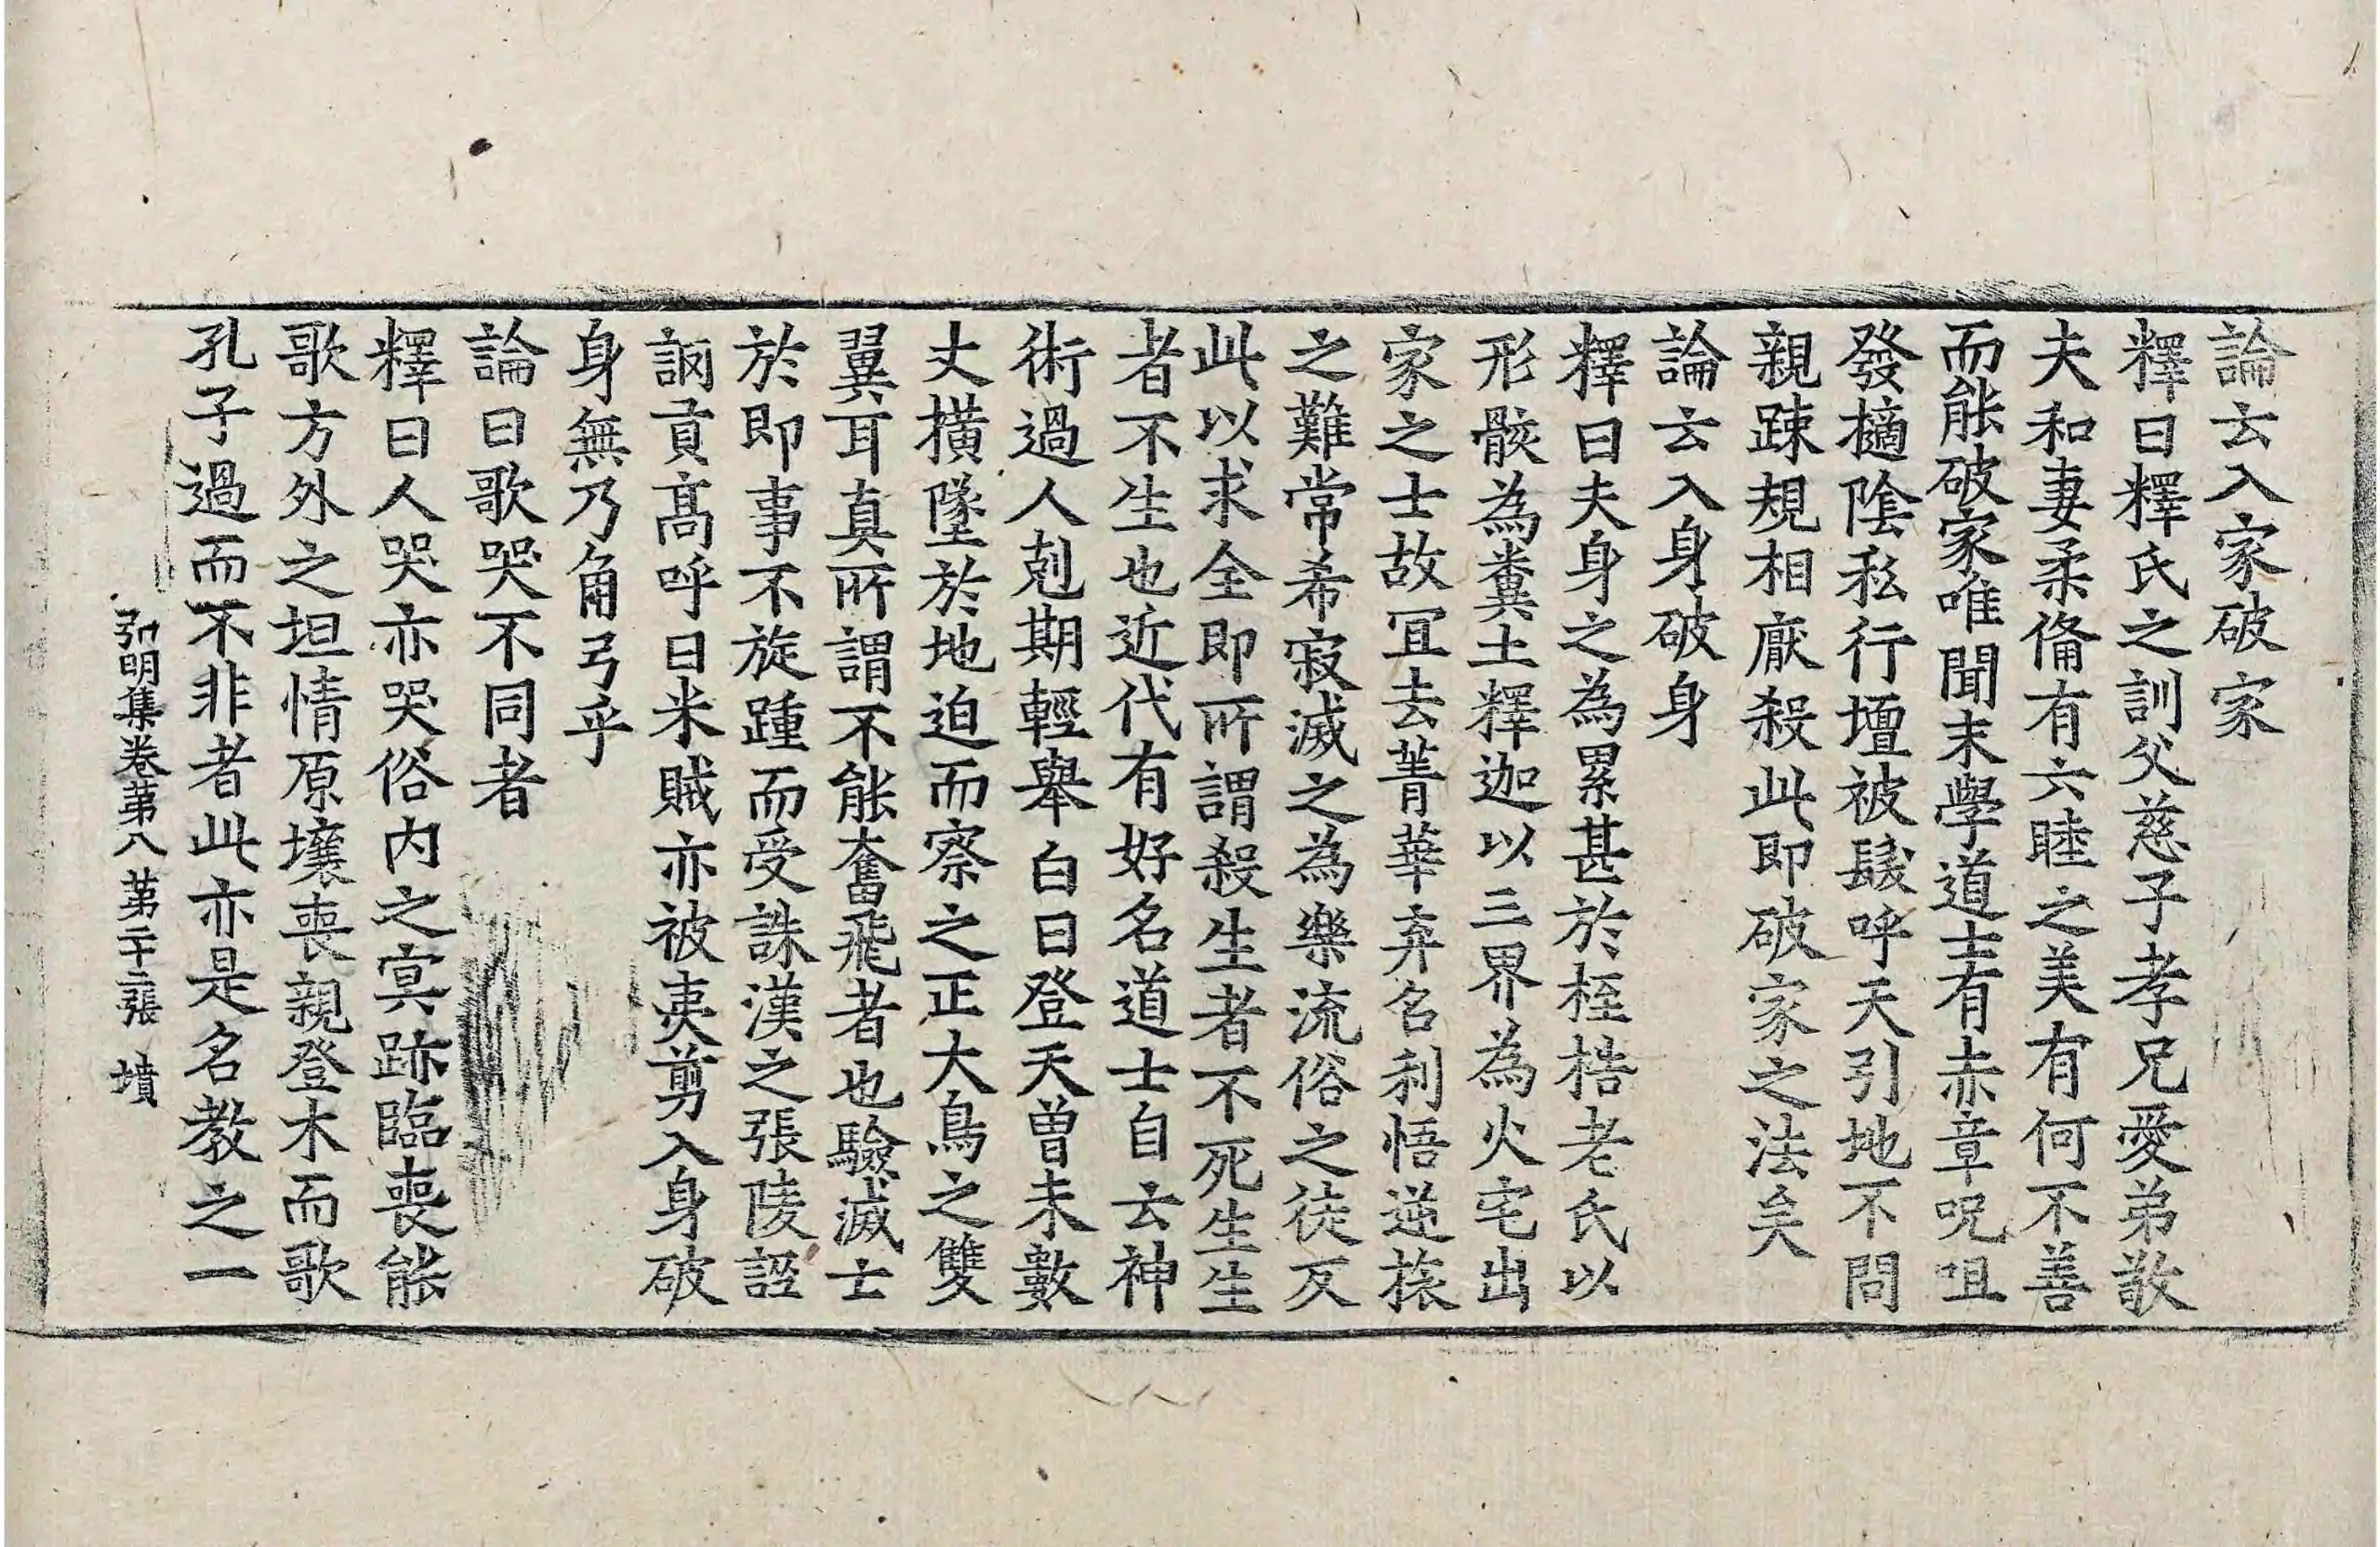 論云入家破家
釋曰釋氏之訓父慈子孝兄愛弟敬
夫和妻柔俻有六睦之美有何不善
而能破家唯聞末學道士有赤章呪咀
發擿隂私行壇被髮呼天引地不問
親踈規相厭殺此即破家之法矣
論云入身破身
釋曰夫身之為累甚於桎梏老氏以
形骸為糞土釋迦以三界為火宅出
家之士故冝去菁華弃名利悟逆旅
之難常希寂滅之為樂流俗之徒反
此以求全即所謂殺生者不死生生
者不生也近代有好名道士自云神
術過人剋期輕舉白日登天曽未數
丈橫墜於地迫而察之正大鳥之雙
翼耳真所謂不能奮飛者也驗滅士
於即事不旋踵而受誅漢之張陵誣
詷貢髙呼曰米賊亦被夷剪入身破
身無乃角弓乎
論曰歌哭不同者
釋曰人哭亦哭俗内之冥跡臨喪能
歌方外之坦情原壤喪親登木而歌
孔子過而不非者此亦是名教之一
弘明集卷第八 第二十二張 墳